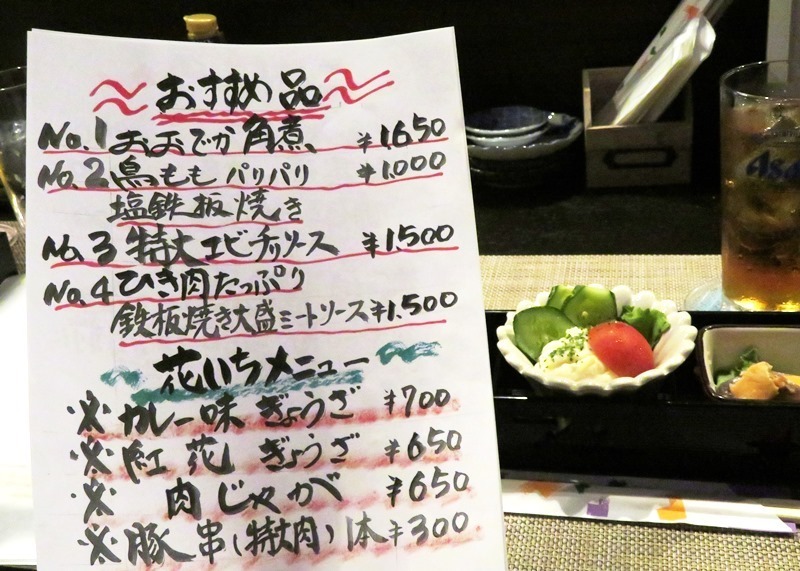 おすすめ品
No.1 おおでか角煮 ¥1,650
No.2 鳥もも パリパリ ¥1,000
塩鉄板焼き
No.3 特大エビチリソース ¥1,500
No.4 ひき肉たっぷり
鉄板焼き大盛ミートソース ¥1,500
花いちメニュー
※ カレー味 ぎょうざ ¥700
※ 紅花 ぎょうざ ¥650
※ 肉じゃが ¥650
※ 豚串(特大肉) 1本 ¥300
Asa